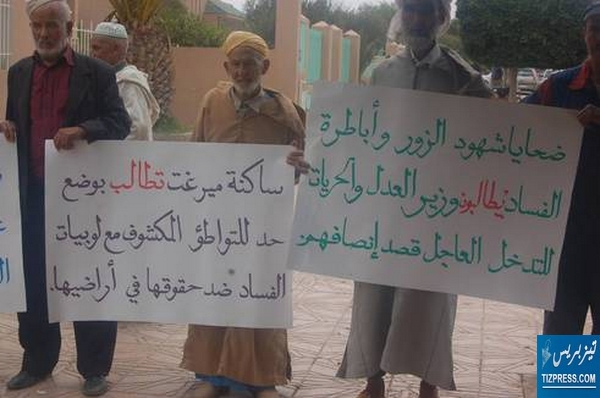 ضحايا شهود الزور وأباطرة
الفساد يطالبون وزير العدل والحريات
للتدخل العاجل قصد إنصافهم
ساكنة ميرغت تطالب بوضع
حد للتواطؤ المكشوف مع لوبيات
الفساد ضد حقوقها في أراضيها.
تيزبريس
TIZPRESS.COM